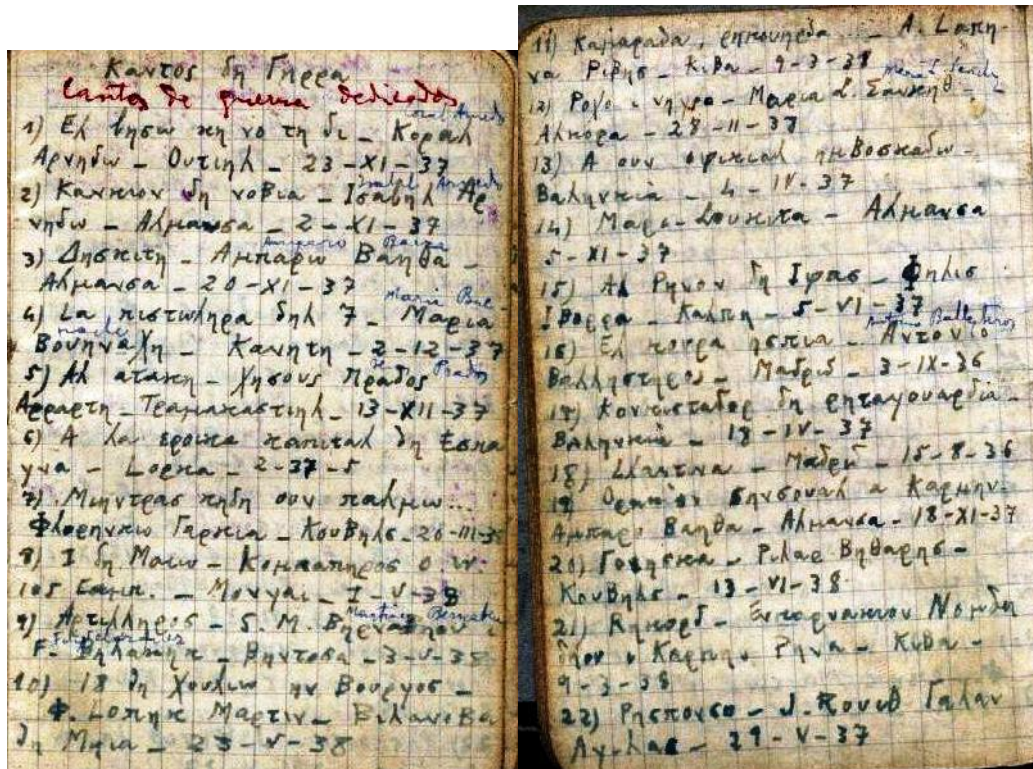 Καντος δη Γηρρα
Cantos de guerra dedicados
1) Ελ βησω κη νο τη δι – Κοραλ
Αρνηδω – Ουτιηλ – 23-XI-37
2) Κανκιον δη νοβια – Ισαβηλ Αρ
νηδω – Αλμανσα – 2-XI-37
3) Δησκιτη – Αμπαρω Βαηθα –
Αλμανσα – 20-XI-37
4) La πιστωληρα δηλ 7 – Μαρια
Βουηναχη – Κανητη – 2-12-37
5) Αλ ατακη – Χησους Πραδος
Αρραρτη – Τραμακαστιηλ – 13-XII-37
6) Α λα εροικα καπιταλ δη Εσπα
γνα – Lορκα – 2-37-5
7) Μιηντρας κηδη ουν παλμω...
Φλορηνκιω Γαρκια – Κουβηλς – 20-III-38
8) Ι δη Μαιω – Κομπαπηρος
105 – Μονγαι – I-V-38
9) Αρτιλληρος – S. M.
F. – Βηντοσα – 3-V-38
10) 18 δη Χουλιω ην Βουργος –
Φ. Lοπηκ Μαρτιν – Βιλανοβα
δη Μηια – 23-V-38
11) Καμαραδα, – A. Lαπη-
να Ριβησ – Κιβα – 9-3-38
12) Ροχο ι νηγρο – Μαρια L. Σανκηθ –
Αλκορα – 28-II-38
13) Α ουν οφικιαλ ημβοσκαδω –
Βαληνκια – 4-IV-37
14) Μαρι-Lουκιτα – Αλμανσα
5-XI-37
15) Αλ Ρηνον δη Ιφας – Φηλισ
Ιβορρα – Καλπη – 5-VI-37
16) Ελ κουρα ησπια – Αντονιο
Βαλληστηρος – Μαδριδ – 3-IX-36
17) Κονκισταδορ δη ρηταγουαρδια –
Βαληνκια – 18-IV-37
18) – Μαδριδ – 15-8-36
19) Ορακιον σηνσουαλ α Καρμην.
Αμπαρο Βαηθα – Αλμανσα – 18-XI-37
20) Γοιησκα – Ριλαρ Βηθαρησ –
Κουβηλς – 13-VI-38
21) Ρηκορδ – Ενκαρνακιον Νομδη
Καρμην Ρηνα – Κιβα –
9-3-38
22) Ρησπονσο – J. Ρουιθ Γαλαν
– 29-V-37